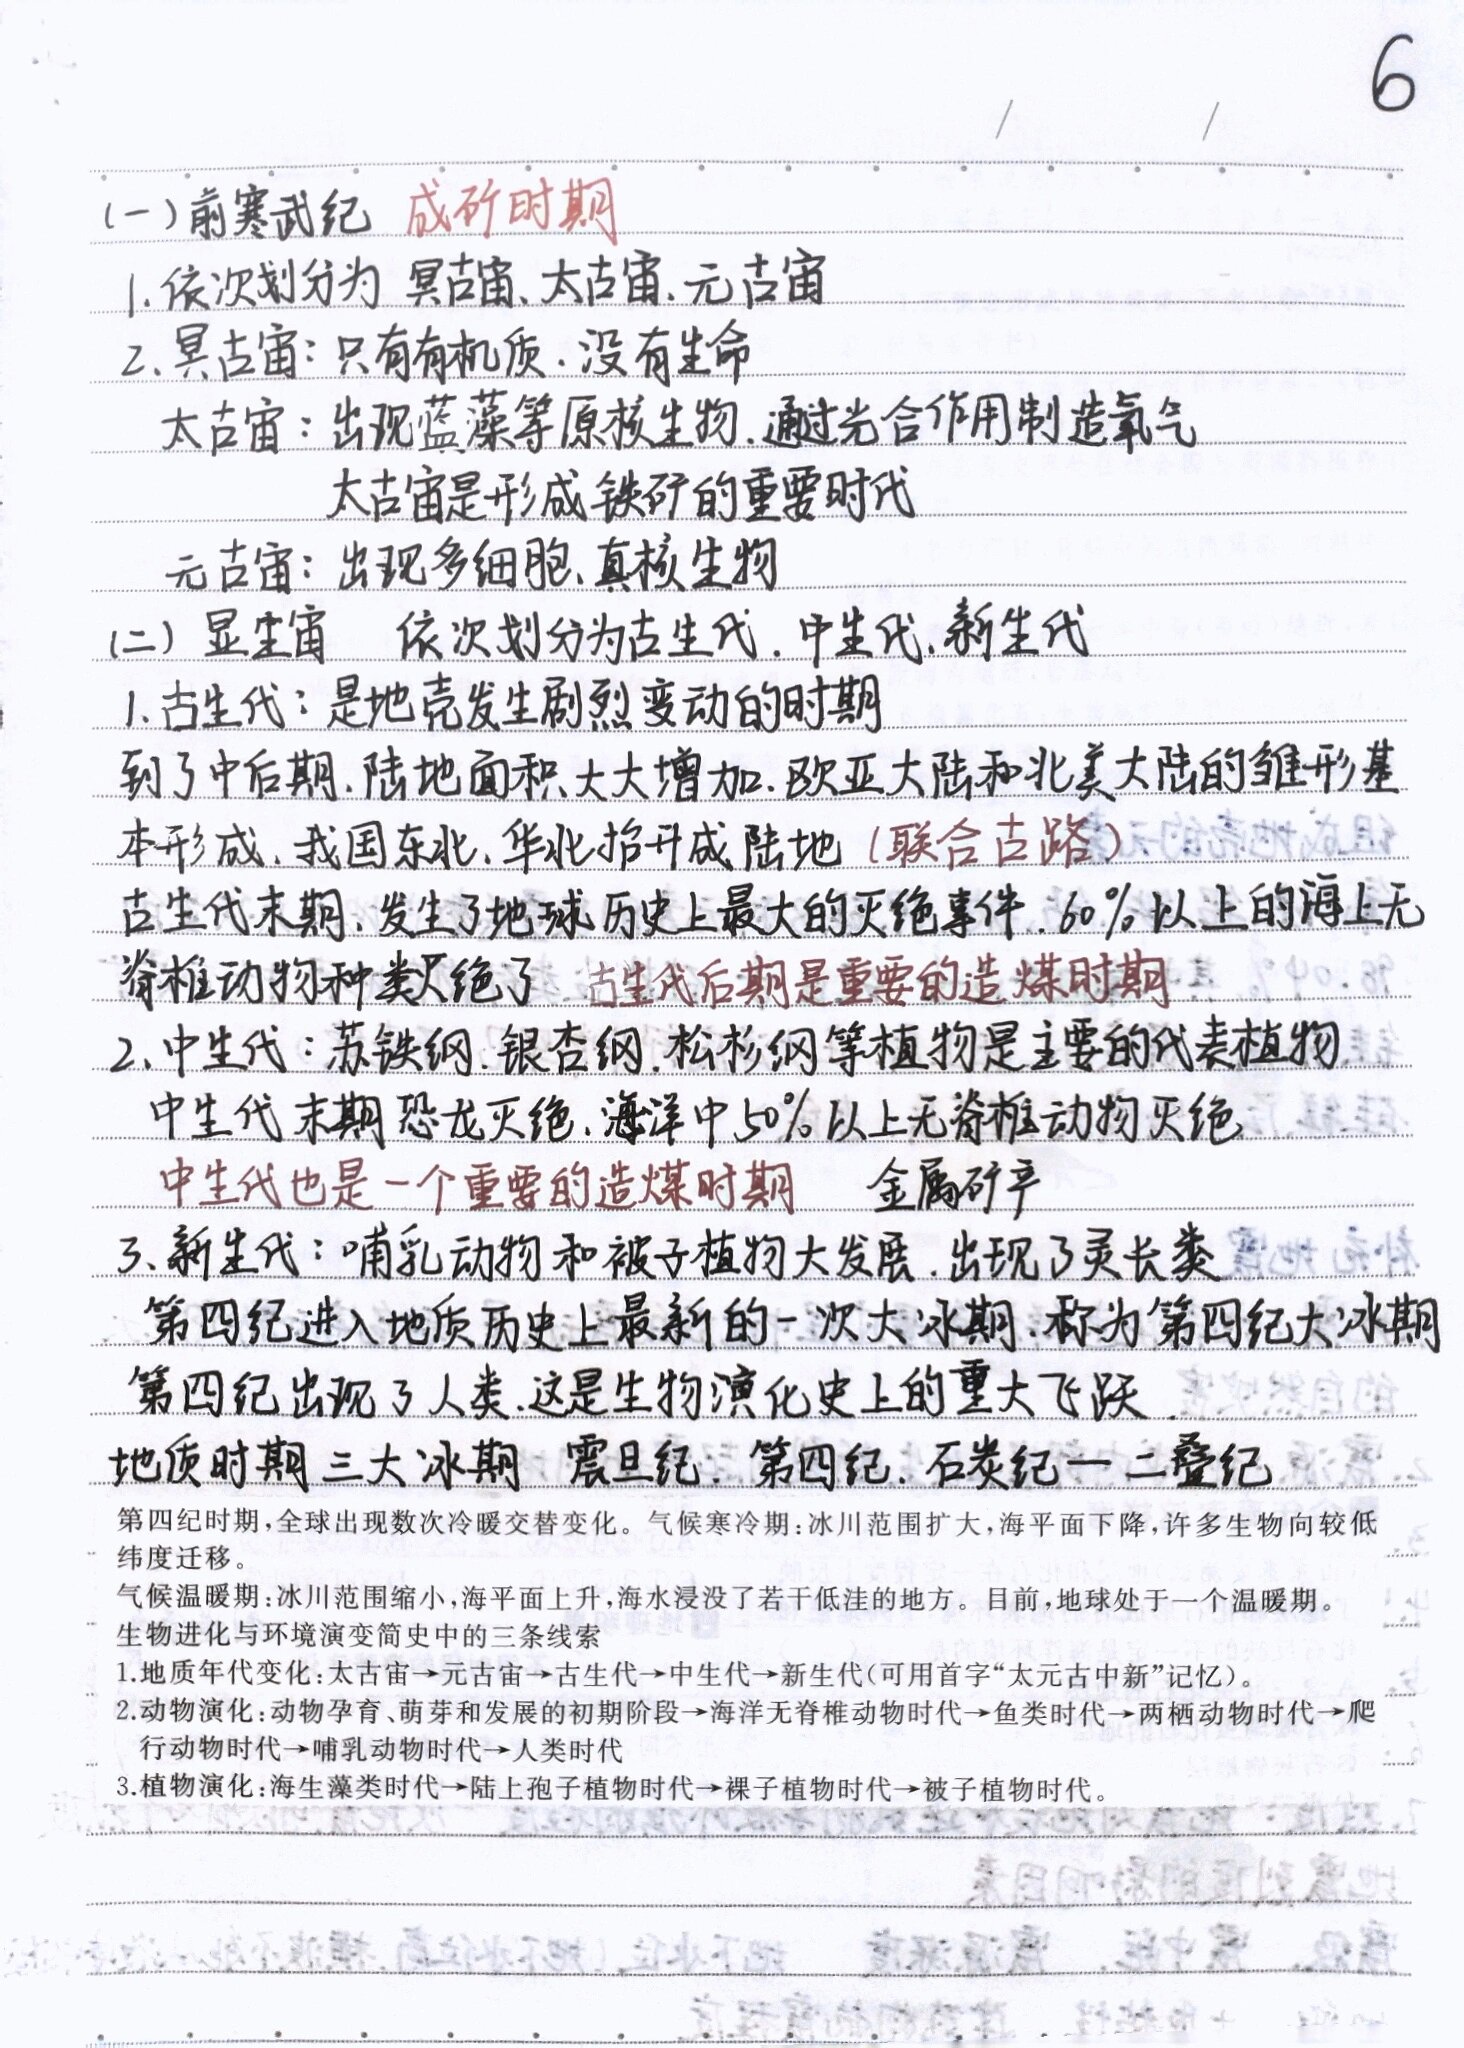 6
(一)前寒武纪 成矿时期
1.依次划分为 冥古宙、太古宙、元古宙
2、冥古宙:只有有机质.没有生命
太古宙:出现蓝藻等原核生物.通过光合作用制造氧气
太古宙是形成铁矿的重要时代
元古宙:出现多细胞、真核生物
(二)显生宙 依次划分为古生代.中生代、新生代
1.古生代:是地壳发生剧烈变动的时期
到了中后期.陆地面积大大增加.欧亚大陆和北美大陆的雏形基
本形成、我国东北、华北抬升成陆地(联合古路)
古生代末期、发生了地球历史上最大的灭绝事件.60%以上的海上无
脊椎动物种类灭绝了 古生代后期是重要的造煤时期
2、中生代:苏铁纲.银杏纲.松杉纲等植物是主要的代表植物
中生代末期恐龙灭绝、海洋中50%以上无脊椎动物灭绝
中生代也是一个重要的造煤时期 金属矿产
3、新生代:哺乳动物和被子植物大发展.出现了灵长类
第四纪进入地质历史上最新的一次大冰期.称为第四纪大冰期
第四纪出现了人类.这是生物演化史上的重大飞跃.
地质时期三大冰期 震旦纪.第四纪.石炭纪一二叠纪
第四纪时期,全球出现数次冷暖交替变化。气候寒冷期:冰川范围扩大,海平面下降,许多生物向较低
纬度迁移。
气候温暖期:冰川范围缩小,海平面上升,海水浸没了若干低洼的地方。目前,地球处于一个温暖期。
生物进化与环境演变简史中的三条线索
1.地质年代变化:太古宙→元古宙→古生代→中生代→新生代(可用首字“太元古中新”记忆)。
2.动物演化:动物孕育、萌芽和发展的初期阶段→海洋无脊椎动物时代→鱼类时代→两栖动物时代→爬
行动物时代→哺乳动物时代→人类时代
3.植物演化:海生藻类时代→陆上孢子植物时代→裸子植物时代→被子植物时代。